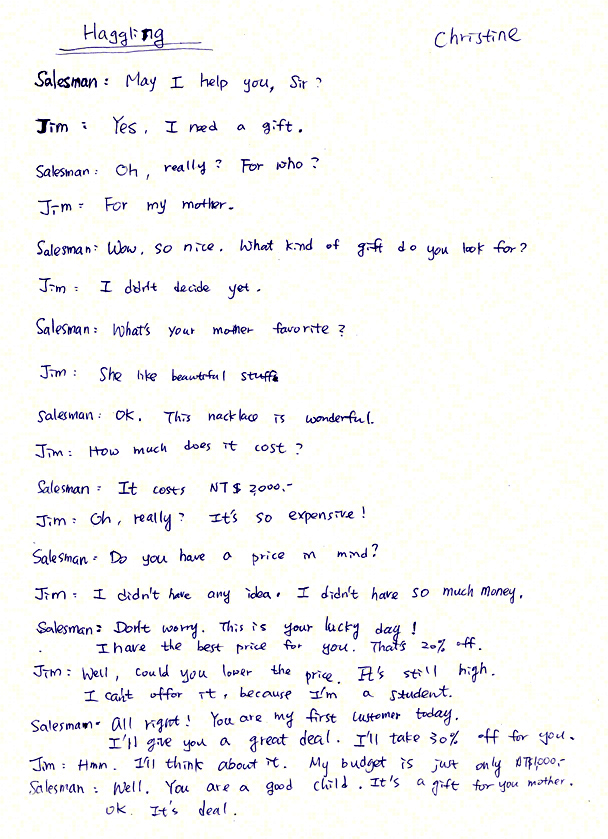 Haggling
Christine
Salesman: May I help you, Sir?
Jim: Yes, I need a gift.
Salesman: Oh, really? For who?
Jim: For my mother.
Salesman: Wow, so nice. What kind of gift do you look for?
Jim: I didn't decide yet.
Salesman: What's your mother favorite?
Jim: She like beautiful stuff
Salesman: OK. This nacklace is wonderful.
Jim: How much does it cost?
Salesman: It costs NT$ 2000.-
Jim: Oh, really? It's so expensive!
Salesman: Do you have a price in mind?
Jim: I didn't have any idea. I didn't have so much money.
Salesman: Don't worry. This is your lucky day!
I have the best price for you. That's 20% off.
Jim: Well, could you lower the price. It's still high.
I can't offor it, because I'm a student.
Salesman: All right! You are my first customer today.
I'll give you a great deal. I'll take 30% off for you.
Jim: Hmn. I'll think about it. My budget is just only NT$1,000.-
Salesman: Well. You are a good child. It's a gift for you mother.
OK. It's deal.